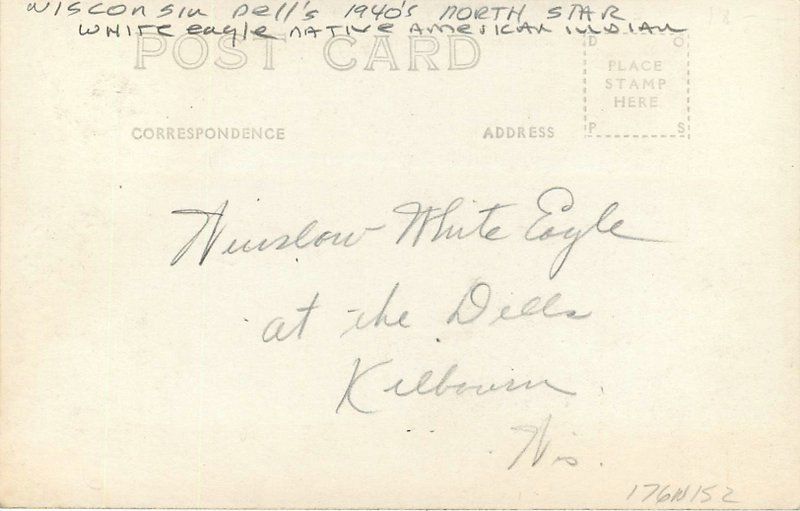 WISCONSIN Dell's 1940's NORTH STAR
WHITE eagle NATIVE AMERICAN INDIAN
POST CARD
D O
PLACE
STAMP
HERE
P S
CORRESPONDENCE ADDRESS
Winslow White Eagle
at the Dells
Kilbourn
Wis.
176N152